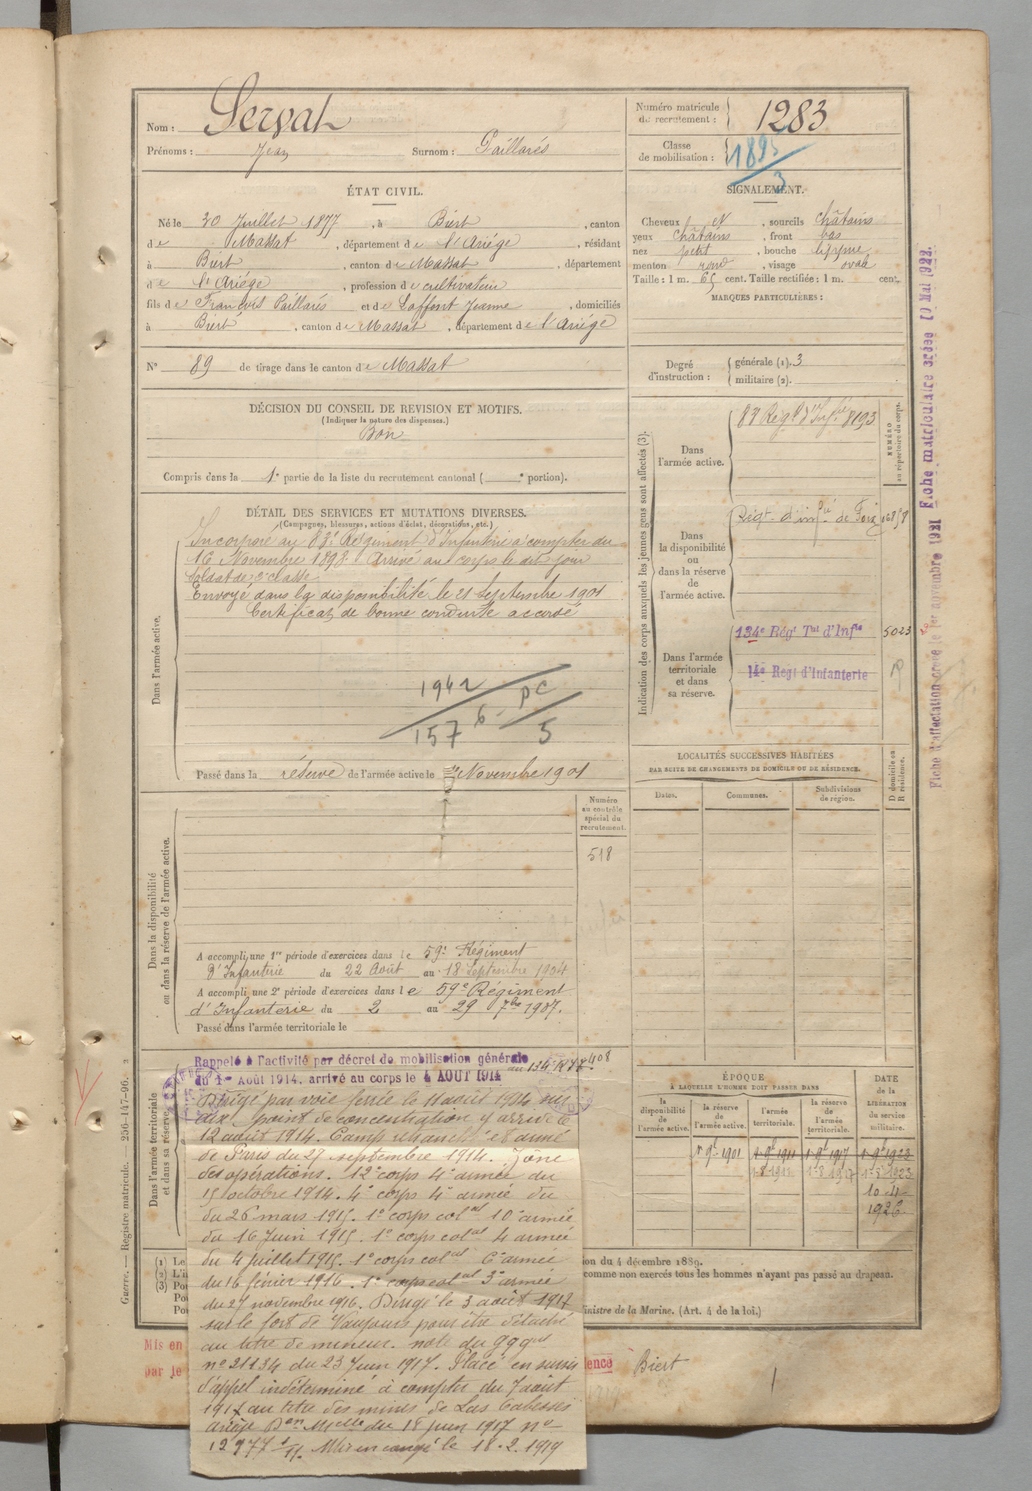 Nom : Servat
Prénoms : Jean Surnom : Paillarés
Numéro matricule de recrutement : 1283
Classe de mobilisation : 1895
3
ÉTAT CIVIL.
Né le 30 Juillet 1877, à Biert, canton
de Massat, département de l'Ariége, résidant
à Biert, canton de Massat, département
de l'Ariége, profession de cultivateur
fils de François Paillarés et de Laffont Jeanne, domiciliés
à Biert, canton de Massat, département de l'Ariége
SIGNALEMENT.
Cheveux N, sourcils châtains
yeux châtains, front bas
nez petit, bouche moyenne
menton rond, visage ovale
Taille : 1 m. 65 cent. Taille rectifiée : 1 m. cent.
MARQUES PARTICULIÈRES :
N° 89 de tirage dans le canton de Massat
Degré d'instruction : générale (1). 3
militaire (2).
DÉCISION DU CONSEIL DE REVISION ET MOTIFS.
(Indiquer la nature des dispenses.)
Bon
Compris dans la 1e partie de la liste du recrutement cantonal ( e portion).
DÉTAIL DES SERVICES ET MUTATIONS DIVERSES.
(Campagnes, blessures, actions d'éclat, décorations, etc.)
Dans l'armée active.
Incorporé au 83e Régiment d'Infanterie à compter du
16 Novembre 1898. Arrivé au corps le dit jour
Soldat de 2e classe
Envoyé dans la disponibilité le 21 Septembre 1901
Certificat de bonne conduite accordé
1942 6 - PC
157 5
Passé dans la réserve de l'armée active le Novembre 1901
Indication des corps auxquels les jeunes gens sont affectés (3).
NUMÉRO au répertoire du corps.
Dans l'armée active.
83 Régt d'Infie 8193
Dans la disponibilité ou dans la réserve de l'armée active.
Régt d'infie de Foix
Dans l'armée territoriale et dans sa réserve.
134e Régt Tal d'Infie 5023
14e Régt d'Infanterie
Fiche d'affectation créée le 1er novembre 1921 Fiche matriculaire créée 10 Mai 1922.
LOCALITÉS SUCCESSIVES HABITÉES
PAR SUITE DE CHANGEMENTS DE DOMICILE OU DE RÉSIDENCE.
Dates. Communes. Subdivisions de région. D domicile ou R résidence.
Dans la disponibilité ou dans la réserve de l'armée active.
Numéro au contrôle spécial du recrutement.
518
A accompli une 1re période d'exercices dans le 59e Régiment
d'Infanterie du 22 Août au 18 Septembre 1904
A accompli une 2e période d'exercices dans le 59e Régiment
d'Infanterie du 2 au 29 7bre 1907.
Passé dans l'armée territoriale le
Dans l'armée territoriale et dans sa réserve.
Rappelé à l'activité par décret de mobilisation générale
du 1er Août 1914. arrivé au corps le 4 AOUT 1914
Dirigé par voie ferrée le 11 août 1914
point de concentration y arrive le
12 août 1914. Camp retranché et armé
de Paris du 27 septembre 1914. Zone
des opérations. 12e corps 4e armée du
15 octobre 1914. 4e corps 4e armée du
du 26 mars 1915. 1e corps colal 10e armée
du 16 Juin 1915. 1e corps colal 4 armée
du 4 juillet 1915. 1e corps colal 6e armée
du 16 février 1916. 1e corps colal 3e armée
du 27 novembre 1916. Dirigé le 3 août 1917
sur le fort de Vaujours pour être détaché
au titre de mineur. note du GQGal
n° 21134 du 23 Juin 1917. Placé en sursis
d'appel indéterminé à compter du 7 août
1917 au titre des mines de Las Cabesses
ariège Don Melle du 18 juin 1917 n°
12977 Mis en congé le 18.2.1919
ÉPOQUE
À LAQUELLE L'HOMME DOIT PASSER DANS
la disponibilité de l'armée active. la réserve de l'armée active. l'armée territoriale. la réserve de l'armée territoriale.
DATE de la LIBÉRATION du service militaire.
1 9e 1901 1 9e 1911 1 9e 1917 1 9e 1923
1-8 1911 1-8 1917 1-8 1923
10-4-
1926
(1) Le
(2) L'i
(3) Po
ion du 4 décembre 1889.
comme non exercés tous les hommes n'ayant pas passé au drapeau.
Ministre de la Marine. (Art. 4 de la loi.)
Mis en
par le
dence Biert
Guerre. — Registre matricule. — 256-147-96.